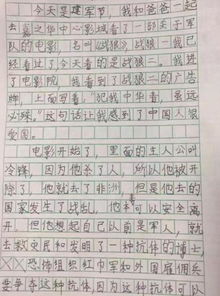 今天是建军节，我和爸爸一起
去之华中心影城看了一部关于军
队的电影，名叫《战狼》战狼一我已
经看过了今天看的是战狼二。我进
了电影院，我看到了战狼二的广告
牌，上面写着：“犯我中华者，虽远
必殊。”这句话让我感到了中国人很
爱国。
电影开始了，里面的主人公叫
冷锋，因为他杀了人，所以他被开
除了，他就去了非洲，但是他去的
国家发生了战乱，他本可以安全离
开，但他想起自己以前是军人，就
去救灾民和发明了一种抗体的博士
××恐怖组织红巾军和外国雇佣兵
要争夺这种抗体，因为抗体可以